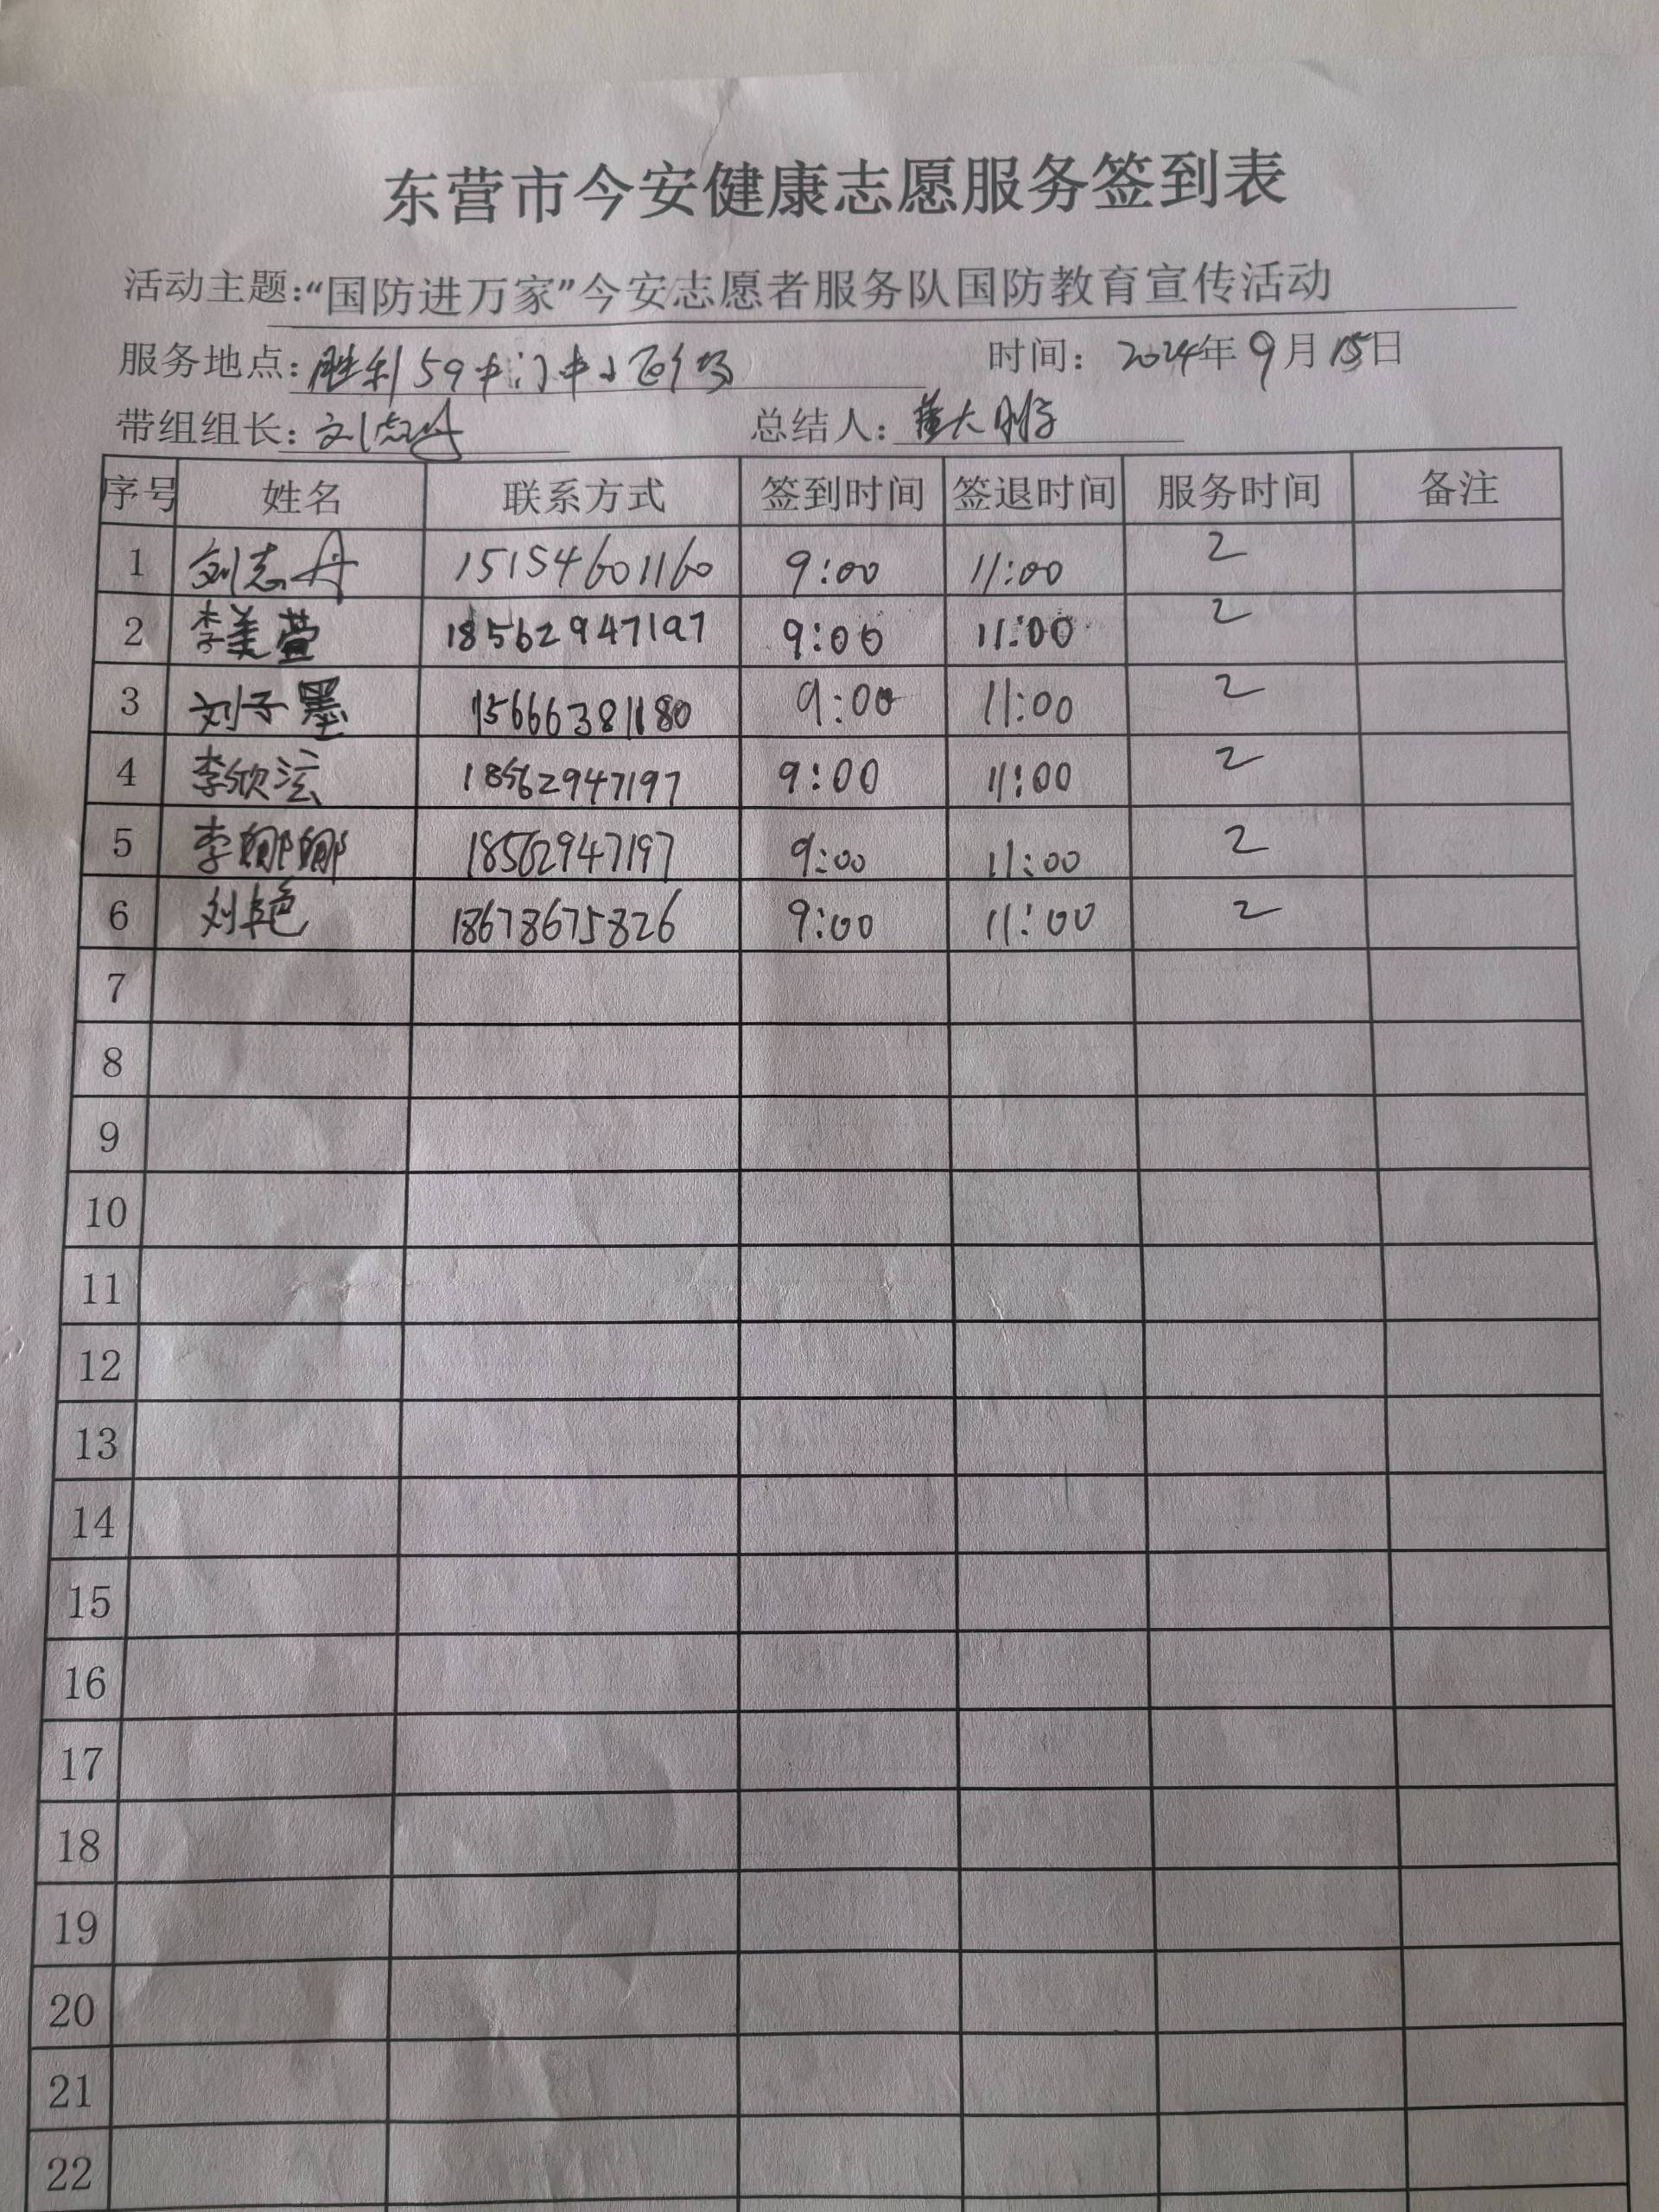 东营市今安健康志愿服务签到表
活动主题:“国防进万家”今安志愿者服务队国防教育宣传活动
服务地点: 胜利59中门中小 时间: 2024年9月15日
带组组长: 刘志丹 总结人:
序号 姓名 联系方式 签到时间 签退时间 服务时间 备注
1 刘志丹 15154601160 9:00 11:00 2
2 李美萱 18562947197 9:00 11:00 2
3 刘子墨 15666381180 9:00 11:00 2
4 李欣泫 18562947197 9:00 11:00 2
5 李娜娜 18562947197 9:00 11:00 2
6 刘艳 18678675826 9:00 11:00 2
7
8
9
10
11
12
13
14
15
16
17
18
19
20
21
22